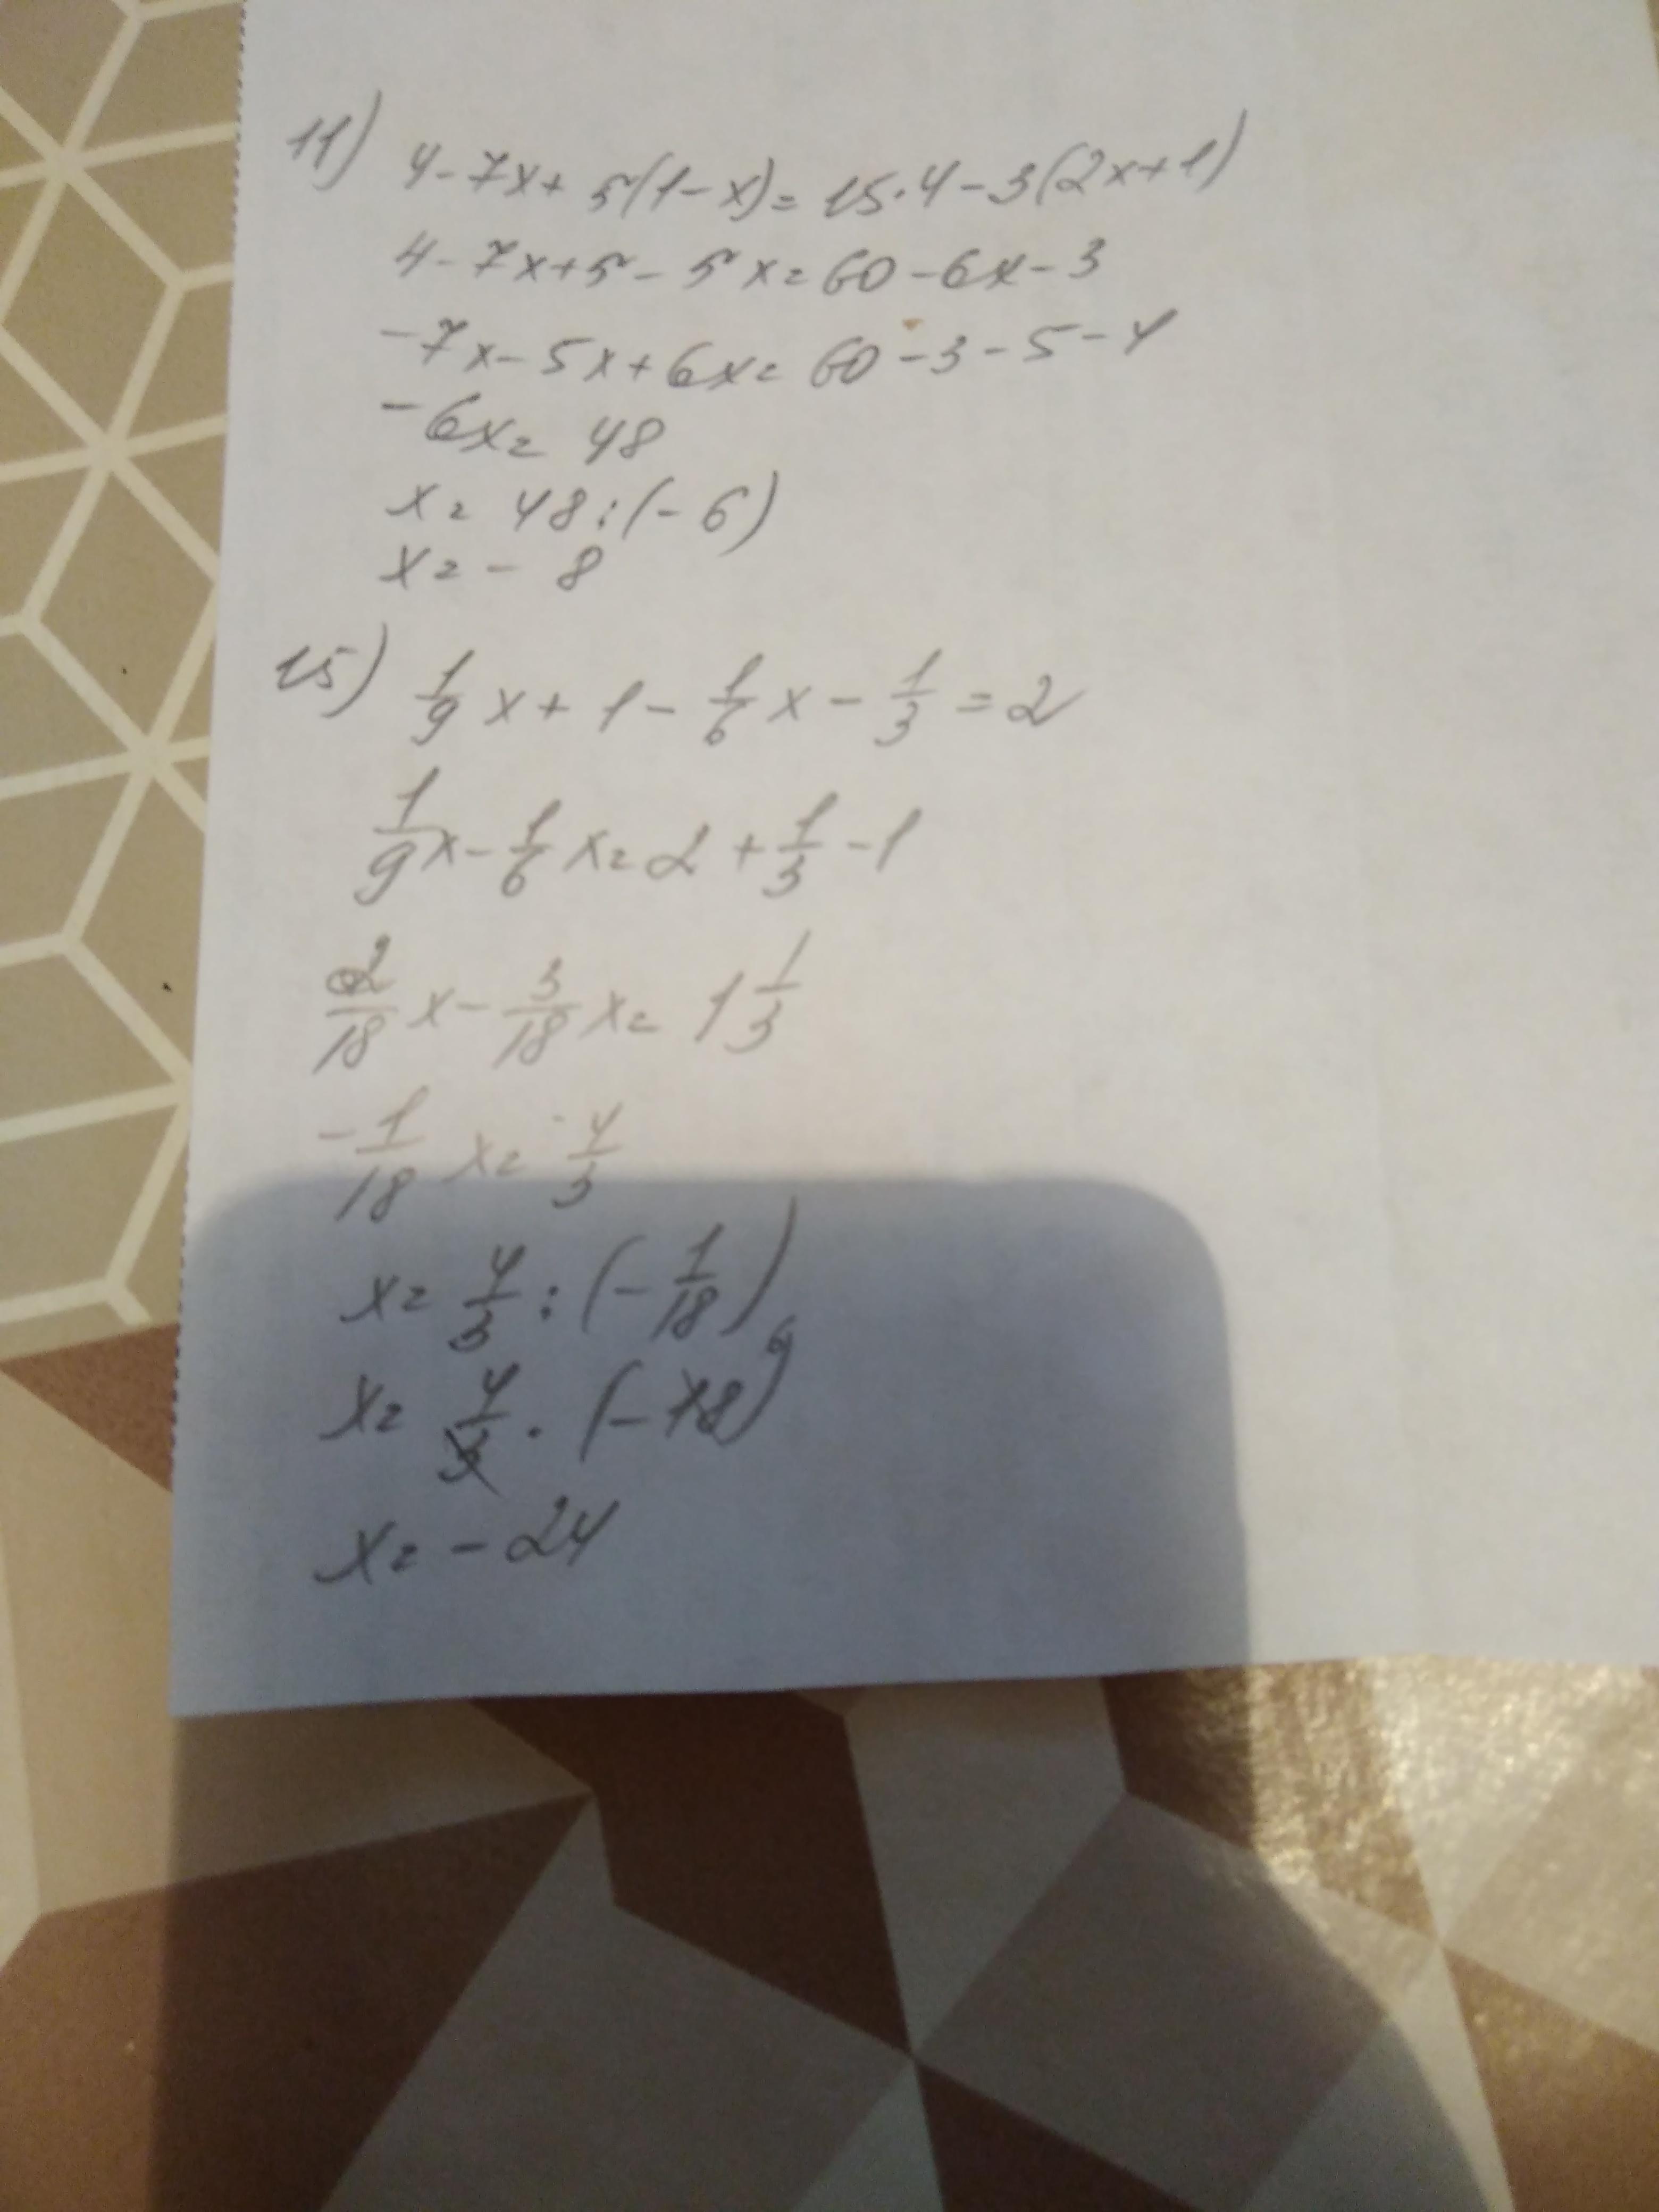 11) 4-7x+5(1-x)=15·4-3(2x+1)
4-7x+5-5x=60-6x-3
-7x-5x+6x=60-3-5-4
-6x=48
x=48:(-6)
x=-8
15) 1/9 x+1-1/6 x-1/3=2
1/9 x-1/6 x=2+1/3-1
2/18 x-3/18 x=1 1/3
-1/18 x=4/3
x=4/3:(-1/18)
x=4/3·(-18) 6
x=-24